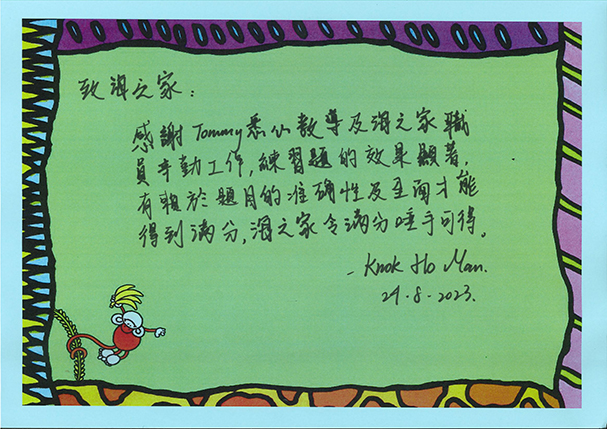 致海之家：
感謝 Tommy 悉心教導及海之家職
員辛勤工作，練習題的效果顯著，
有賴於題目的准确性及全面才能
得到滿分，海之家令滿分唾手可得。
- Kwok Ho Man.
8.2023.